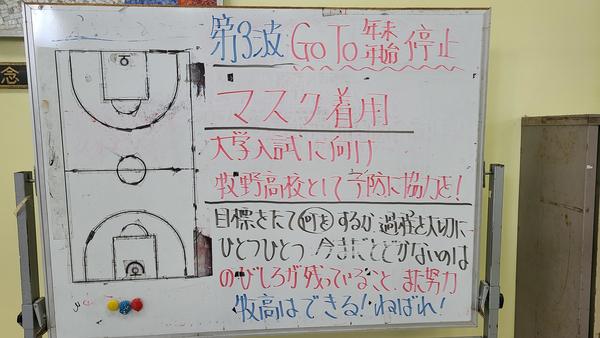 念
第3波 Go To 年末年始 停止
マスク着用
大学入試に向け
牧野高校として予防に協力を!
目標をたて何をするか 過程を大切に
ひとつひとつ 今までとどかないのは
のびしろが残っていること、また努力
牧高はできる!ねばれ!